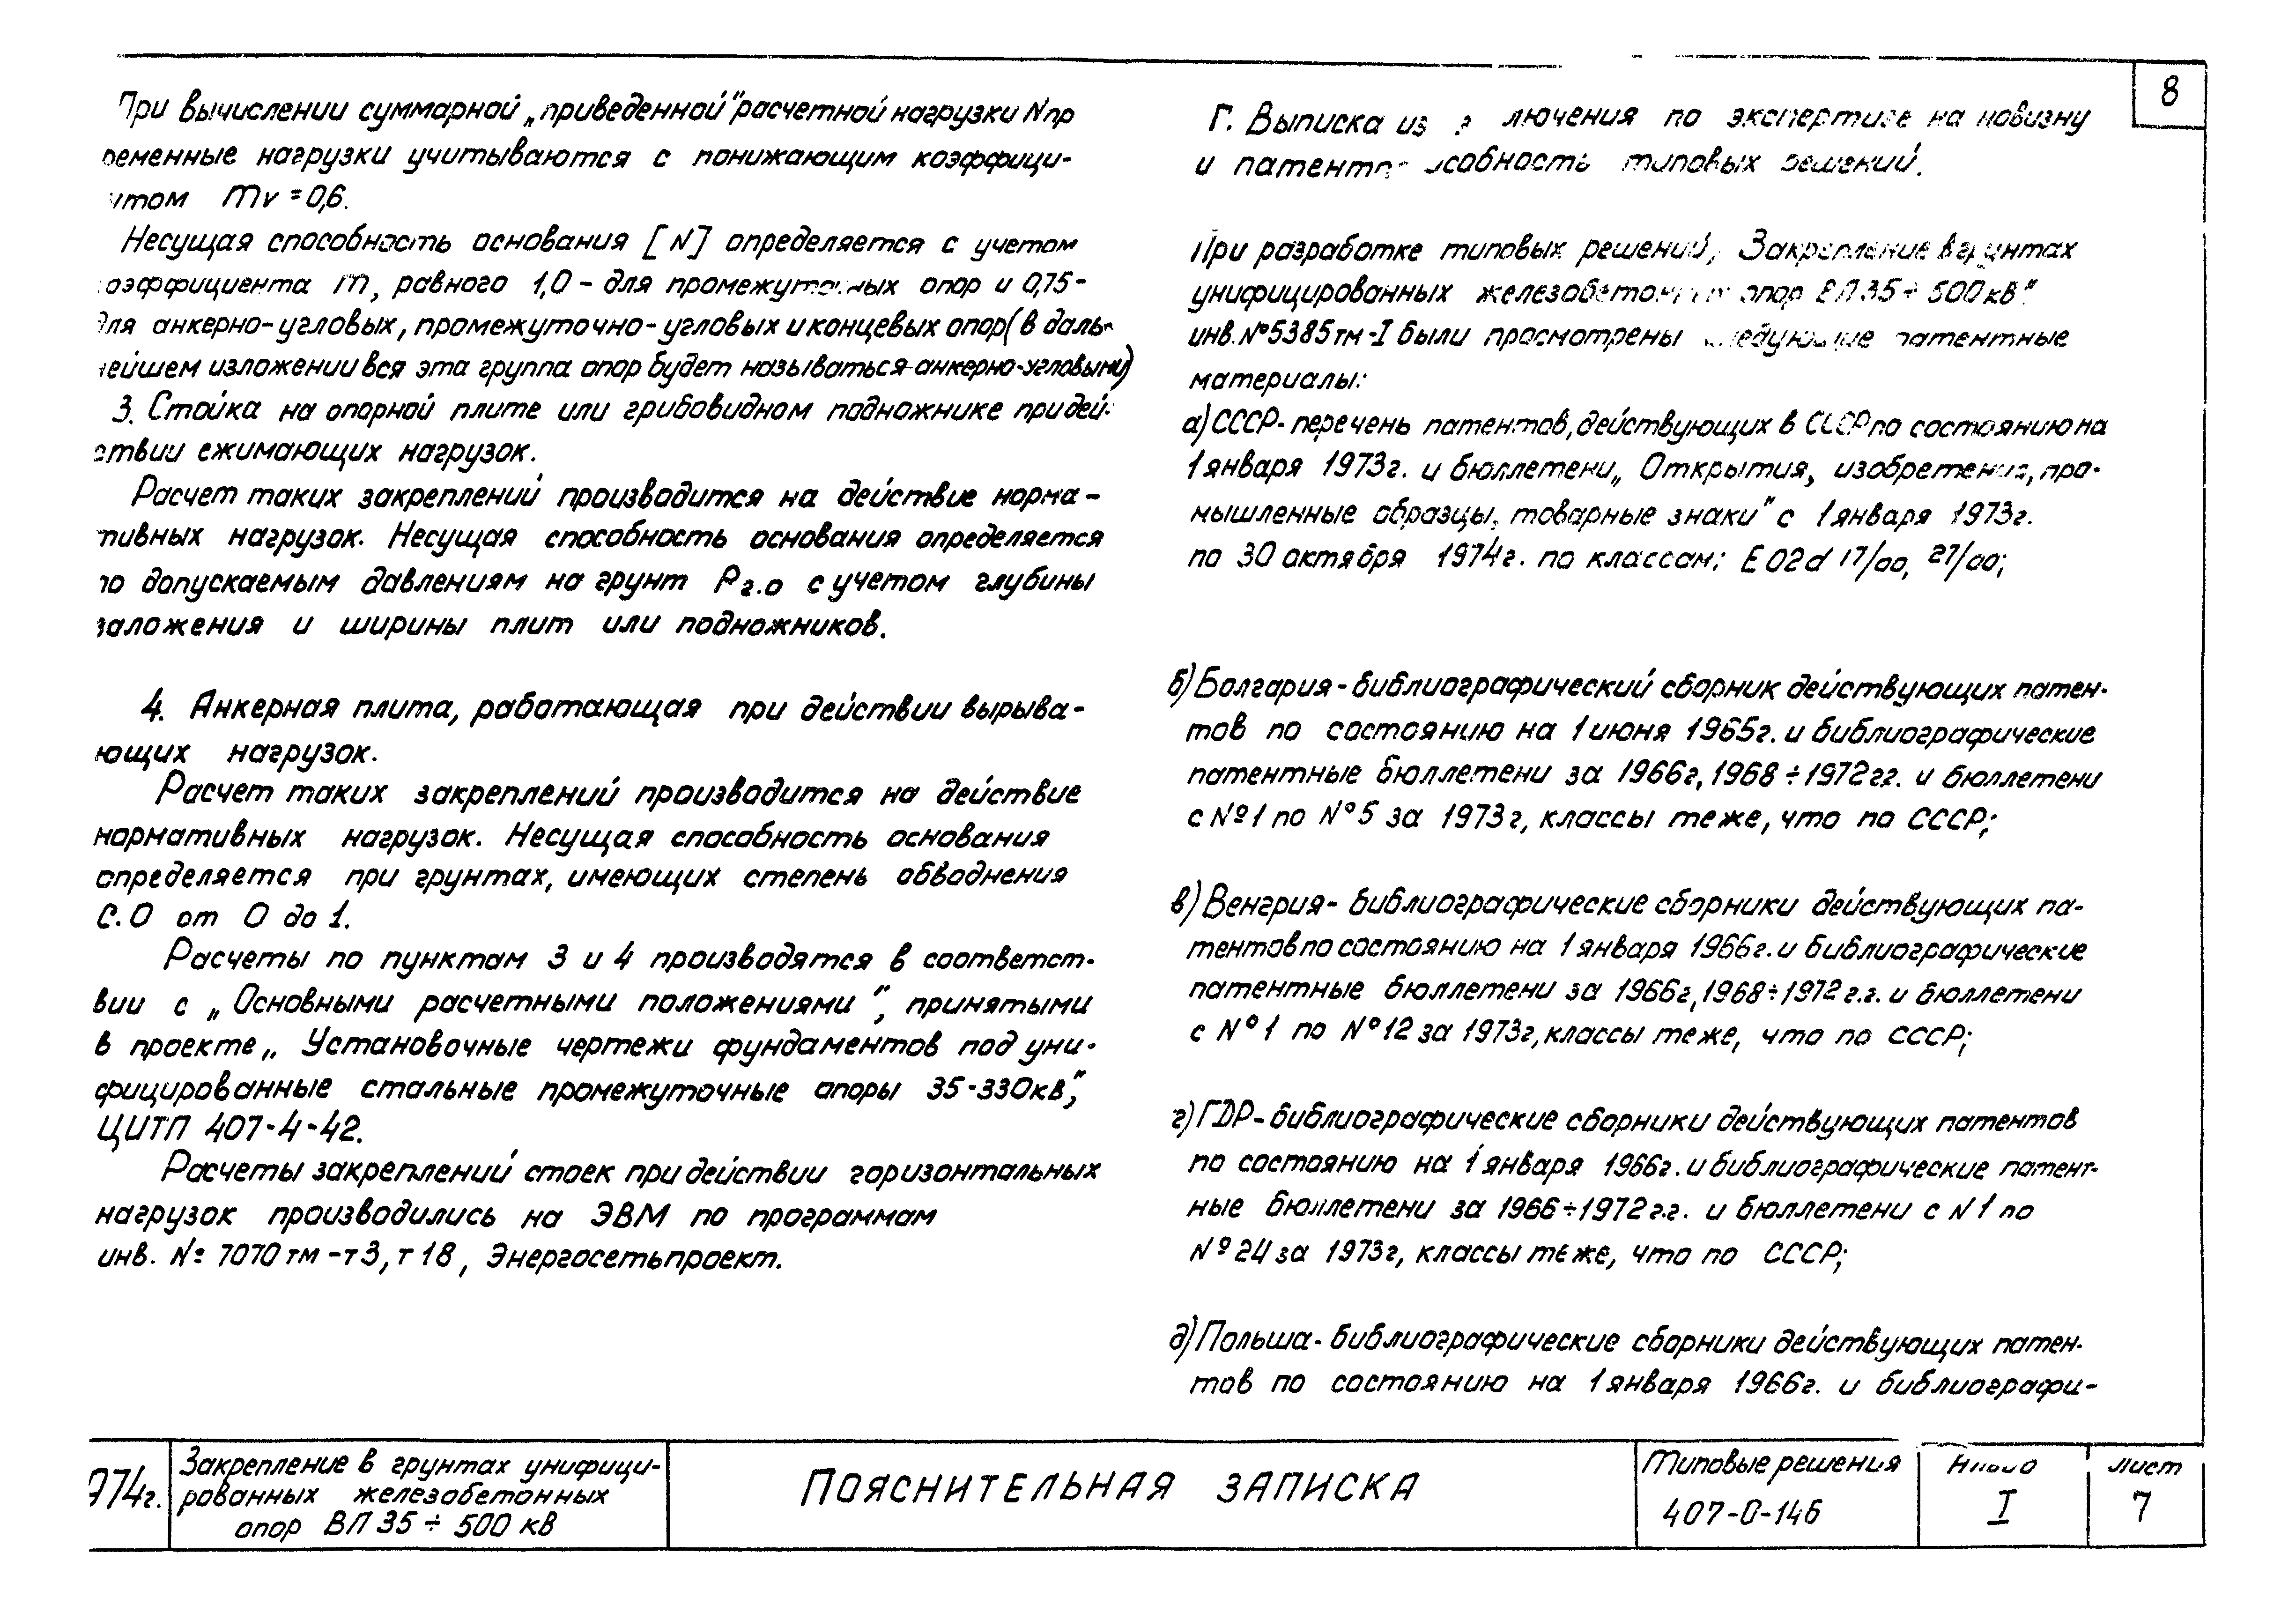 При вычислении суммарной „приведенной" расчетной нагрузки Nпр
ременные нагрузки учитываются с понижающим коэффици-
нтом mv = 0,6.
Несущая способность основания [N] определяется с учетом
оэффициента m, равного 1,0 - для промежуточных опор и 0,75-
для анкерно-угловых, промежуточно-угловых и концевых опор (в даль-
нейшем изложении вся эта группа опор будет называться анкерно-угловыми)
3. Стойка на опорной плите или грибовидном подножнике при дей-
ствии сжимающих нагрузок.
Расчет таких закреплений производится на действие норма-
тивных нагрузок. Несущая способность основания определяется
по допускаемым давлениям на грунт Рг.о с учетом глубины
заложения и ширины плит или подножников.
4. Анкерная плита, работающая при действии вырыва-
ющих нагрузок.
Расчет таких закреплений производится на действие
нормативных нагрузок. Несущая способность основания
определяется при грунтах, имеющих степень обводнения
С.О от 0 до 1.
Расчеты по пунктам 3 и 4 производятся в соответст-
вии с „Основными расчетными положениями", принятыми
в проекте „Установочные чертежи фундаментов под уни-
фицированные стальные промежуточные опоры 35-330кв",
ЦИТП 407-4-42.
Расчеты закреплений стоек при действии горизонтальных
нагрузок производились на ЭВМ по программам
инв. № 7070тм-т3, т18, Энергосетьпроект.
8
Г. Выписка из лючения по экспертизе на новизну
и патентоспособность типовых решений.
При разработке типовых решений „Закрепление в грунтах
унифицированных железобетонных опор ВЛ 35÷500кВ"
инв. №5385тм-I были просмотрены следующие патентные
материалы:
а) СССР- перечень патентов, действующих в СССР по состоянию на
1 января 1973г. и бюллетени „Открытия, изобретения, про-
мышленные образцы, товарные знаки" с 1 января 1973г.
по 30 октября 1974г. по классам: E02d 17/00, 27/00;
б) Болгария - библиографический сборник действующих патен-
тов по состоянию на 1 июня 1965г. и библиографические
патентные бюллетени за 1966г, 1968÷1972гг. и бюллетени
с №1 по №5 за 1973г, классы те же, что по СССР;
в) Венгрия - библиографические сборники действующих па-
тентов по состоянию на 1 января 1966г. и библиографические
патентные бюллетени за 1966г, 1968÷1972г.г. и бюллетени
с №1 по №12 за 1973г, классы те же, что по СССР;
г) ГДР - библиографические сборники действующих патентов
по состоянию на 1 января 1966г. и библиографические патент-
ные бюллетени за 1966÷1972г.г. и бюллетени с N1 по
№24 за 1973г, классы те же, что по СССР;
д) Польша - библиографические сборники действующих патен-
тов по состоянию на 1 января 1966г. и библиографи-
974г.
Закрепление в грунтах унифици-
рованных железобетонных
опор ВЛ 35÷500 кВ
ПОЯСНИТЕЛЬНАЯ ЗАПИСКА
Типовые решения
407-0-146
I
Лист
7